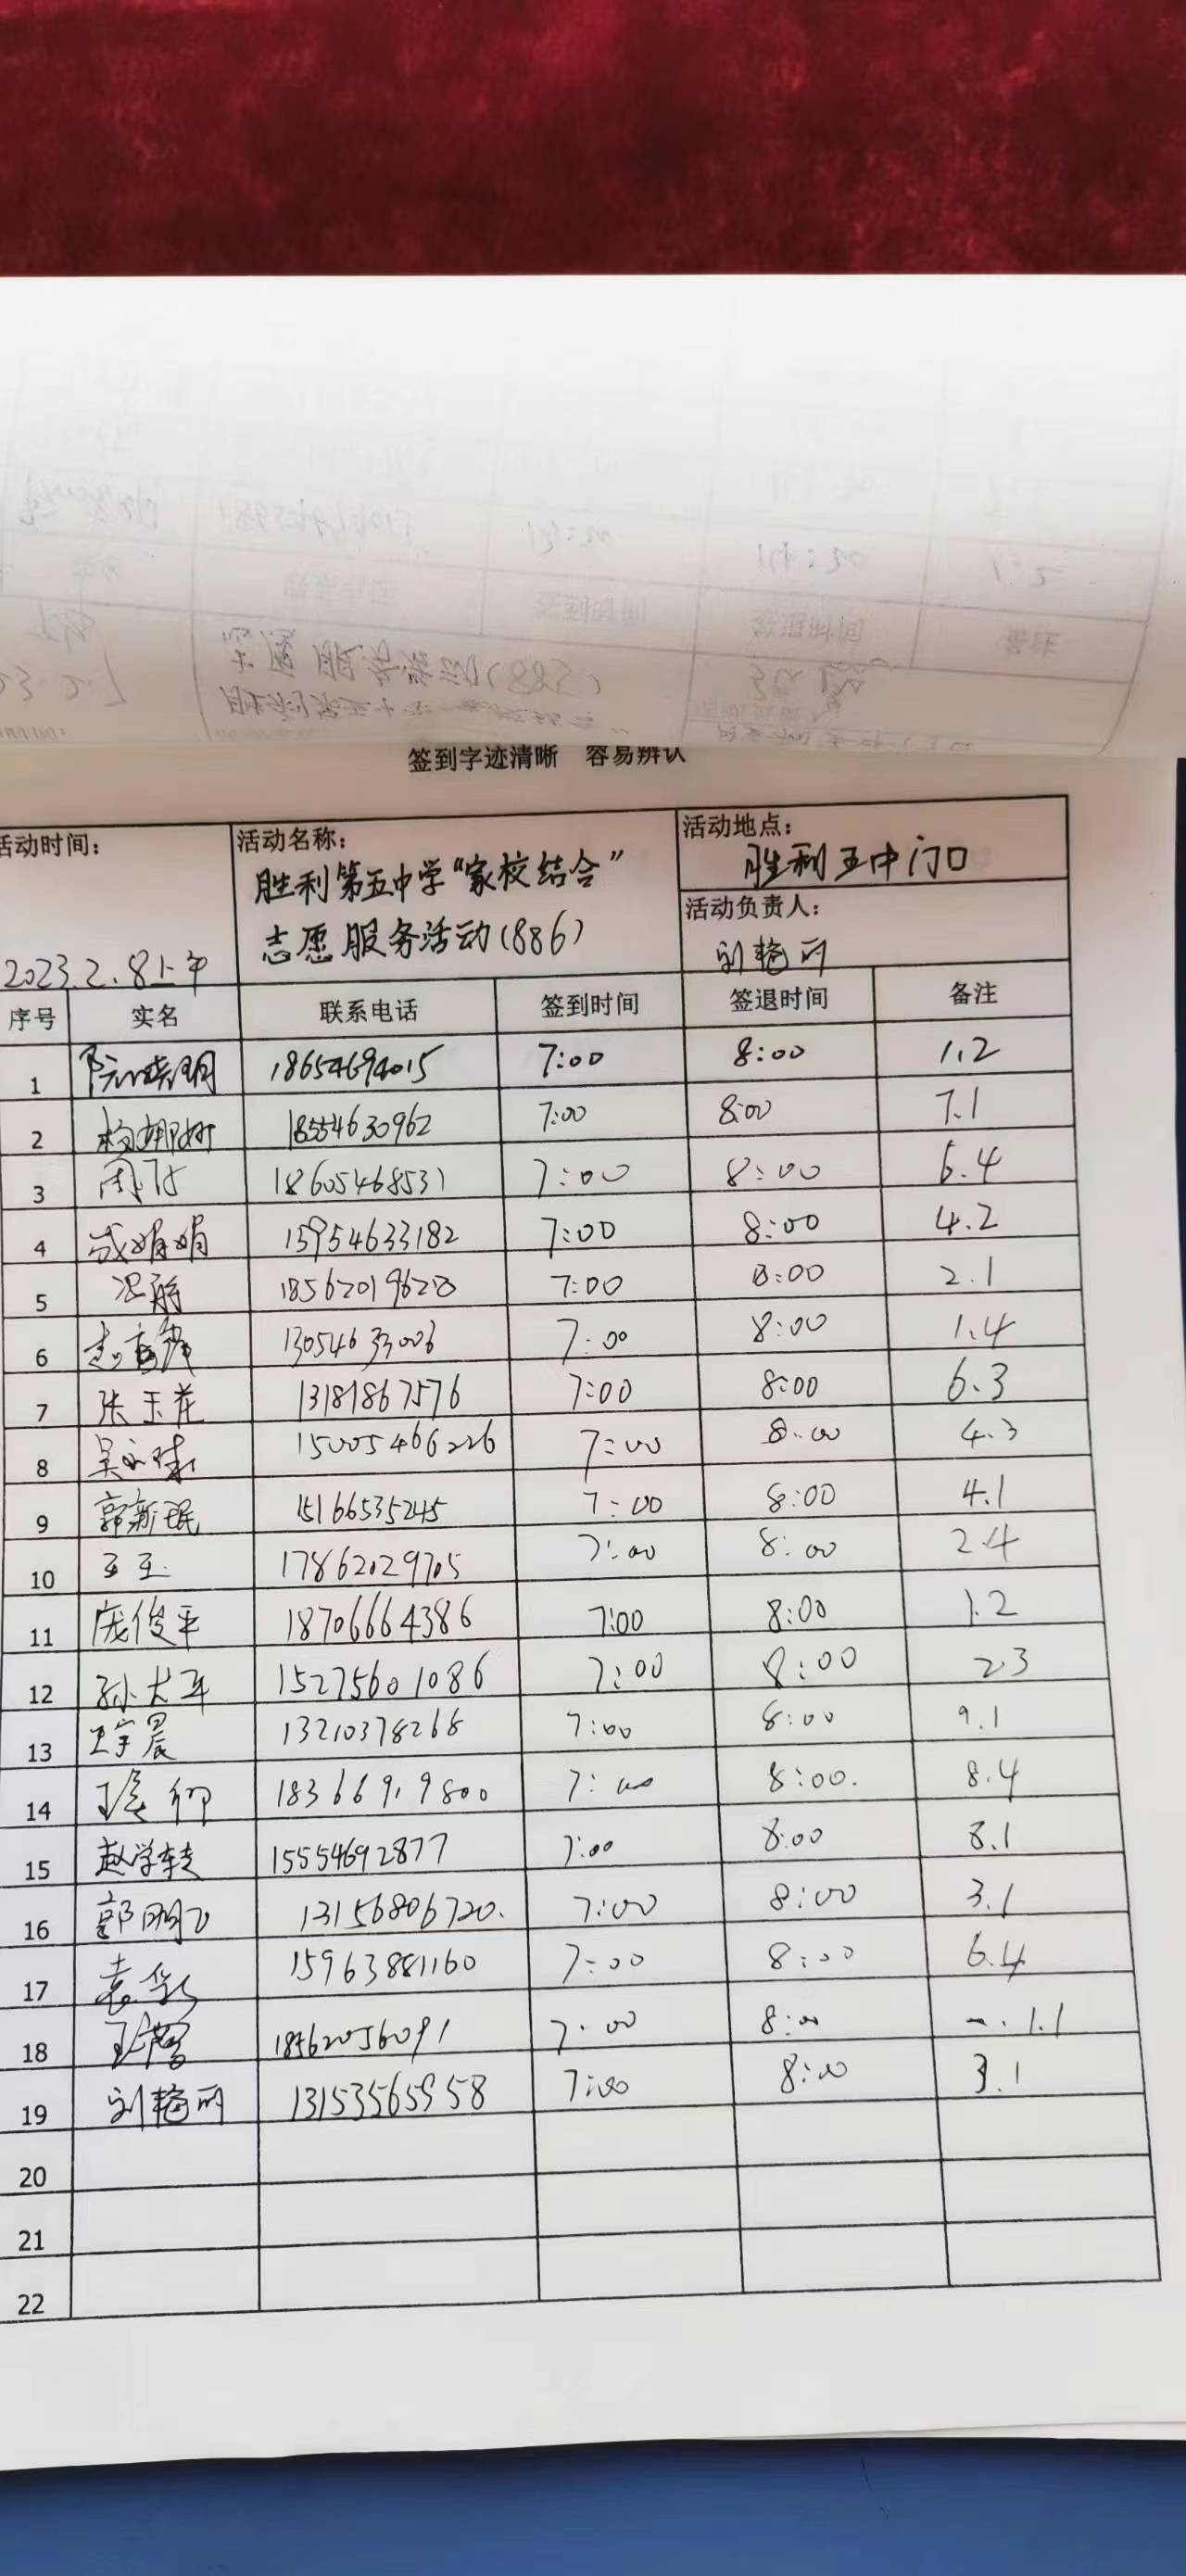 签到字迹清晰 容易辨认
活动时间: 2023.2.8上午
活动名称: 胜利第五中学“家校结合”
志愿服务活动(886)
活动地点: 胜利五中门口
活动负责人: 刘艳丽
序号 实名 联系电话 签到时间 签退时间 备注
1 18654694015 7:00 8:00 1.2
2 杨娜娜 18554630962 7:00 8:00 7.1
3 18605468531 7:00 8:00 6.4
4 成娟娟 15954633182 7:00 8:00 4.2
5 7:00 8:00 2.1
6 13054633003 7:00 8:00 1.4
7 张玉花 13181867576 7:00 8:00 6.3
8 15005466226 7:00 8:00 4.3
9 郭新珉 15166535245 7:00 8:00 4.1
10 17862029705 7:00 8:00 2.4
11 庞俊平 18706664386 7:00 8:00 1.2
12 孙大军 15275601086 7:00 8:00 2.3
13 王宇晨 13210378268 7:00 8:00 9.1
14 18366919800 7:00 8:00. 8.4
15 赵学转 15554692877 7:00 8:00 8.1
16 郭明飞 13156806720. 7:00 8:00 3.1
17 袁华 15963881160 7:00 8:00 6.4
18 18562056091 7:00 8:00 1.1
19 刘艳丽 13153565958 7:00 8:00 3.1
20
21
22